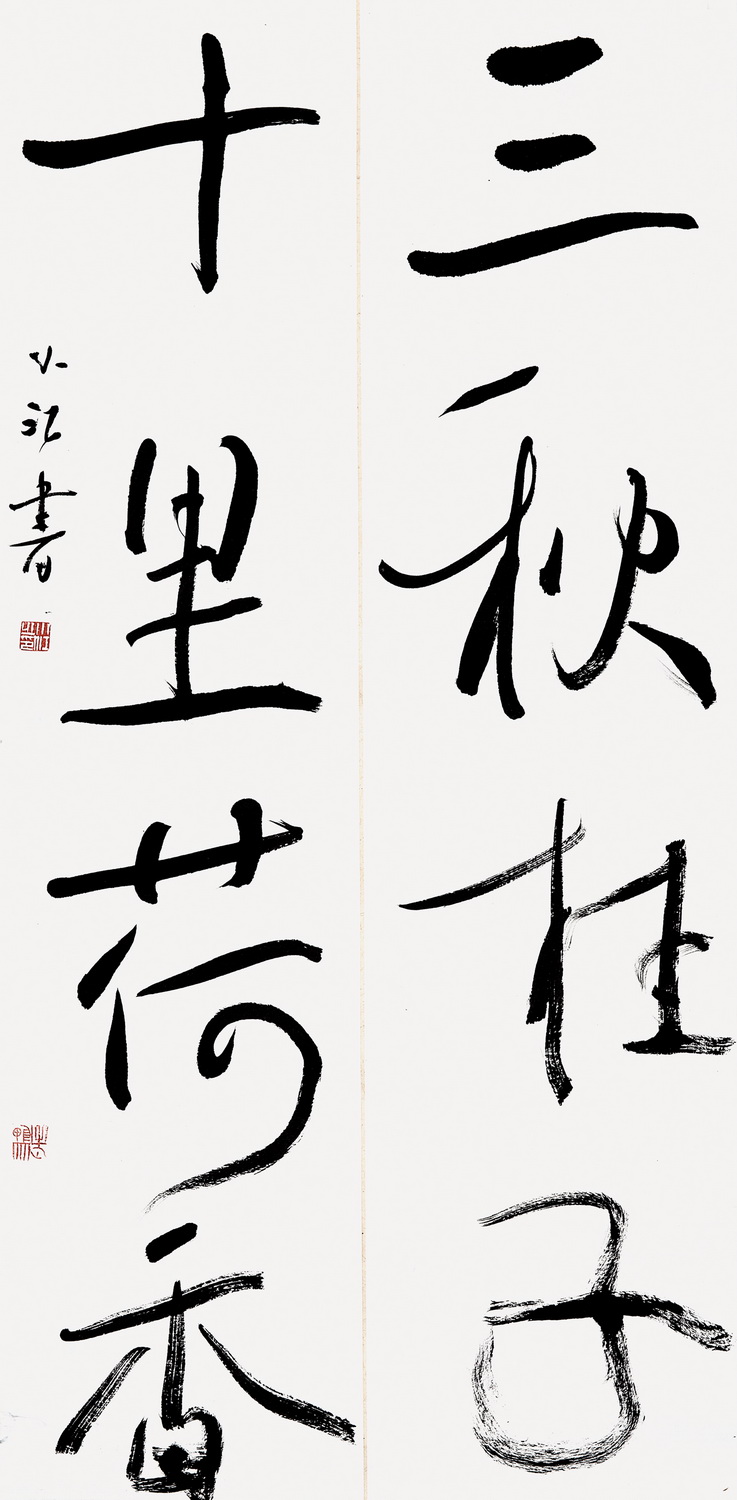 三秋桂子
十里荷香
小江書